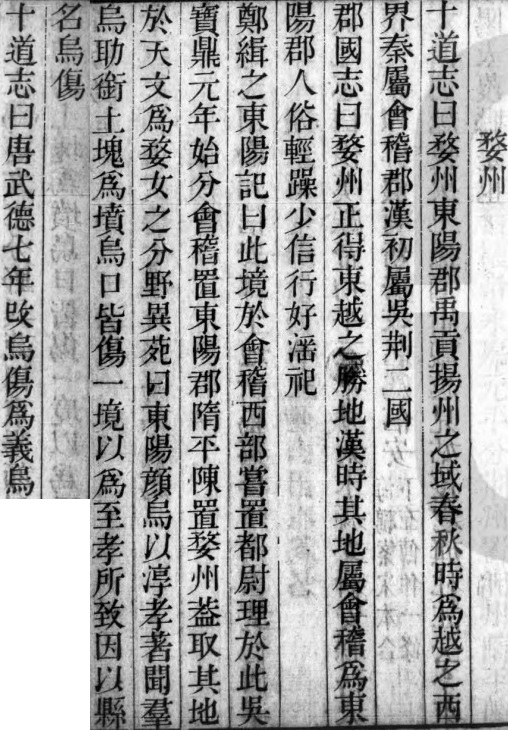 婺州
十道志曰婺州東陽郡禹貢揚州之域春秋時爲越之西
界秦屬會稽郡漢初屬吳荆二國
郡國志曰婺州正得東越之勝地漢時其地屬會稽爲東
陽郡人俗輕躁少信行好滛祀
鄭緝之東陽記曰此境於會稽西部嘗置都尉理於此吳
寶鼎元年始分會稽置東陽郡隋平陳置婺州葢取其地
於天文爲婺女之分野異苑曰東陽顔烏以淳孝著聞羣
烏助銜土塊爲墳烏口皆傷一境以爲至孝所致因以縣
名烏傷
十道志曰唐武德七年改烏傷爲義烏